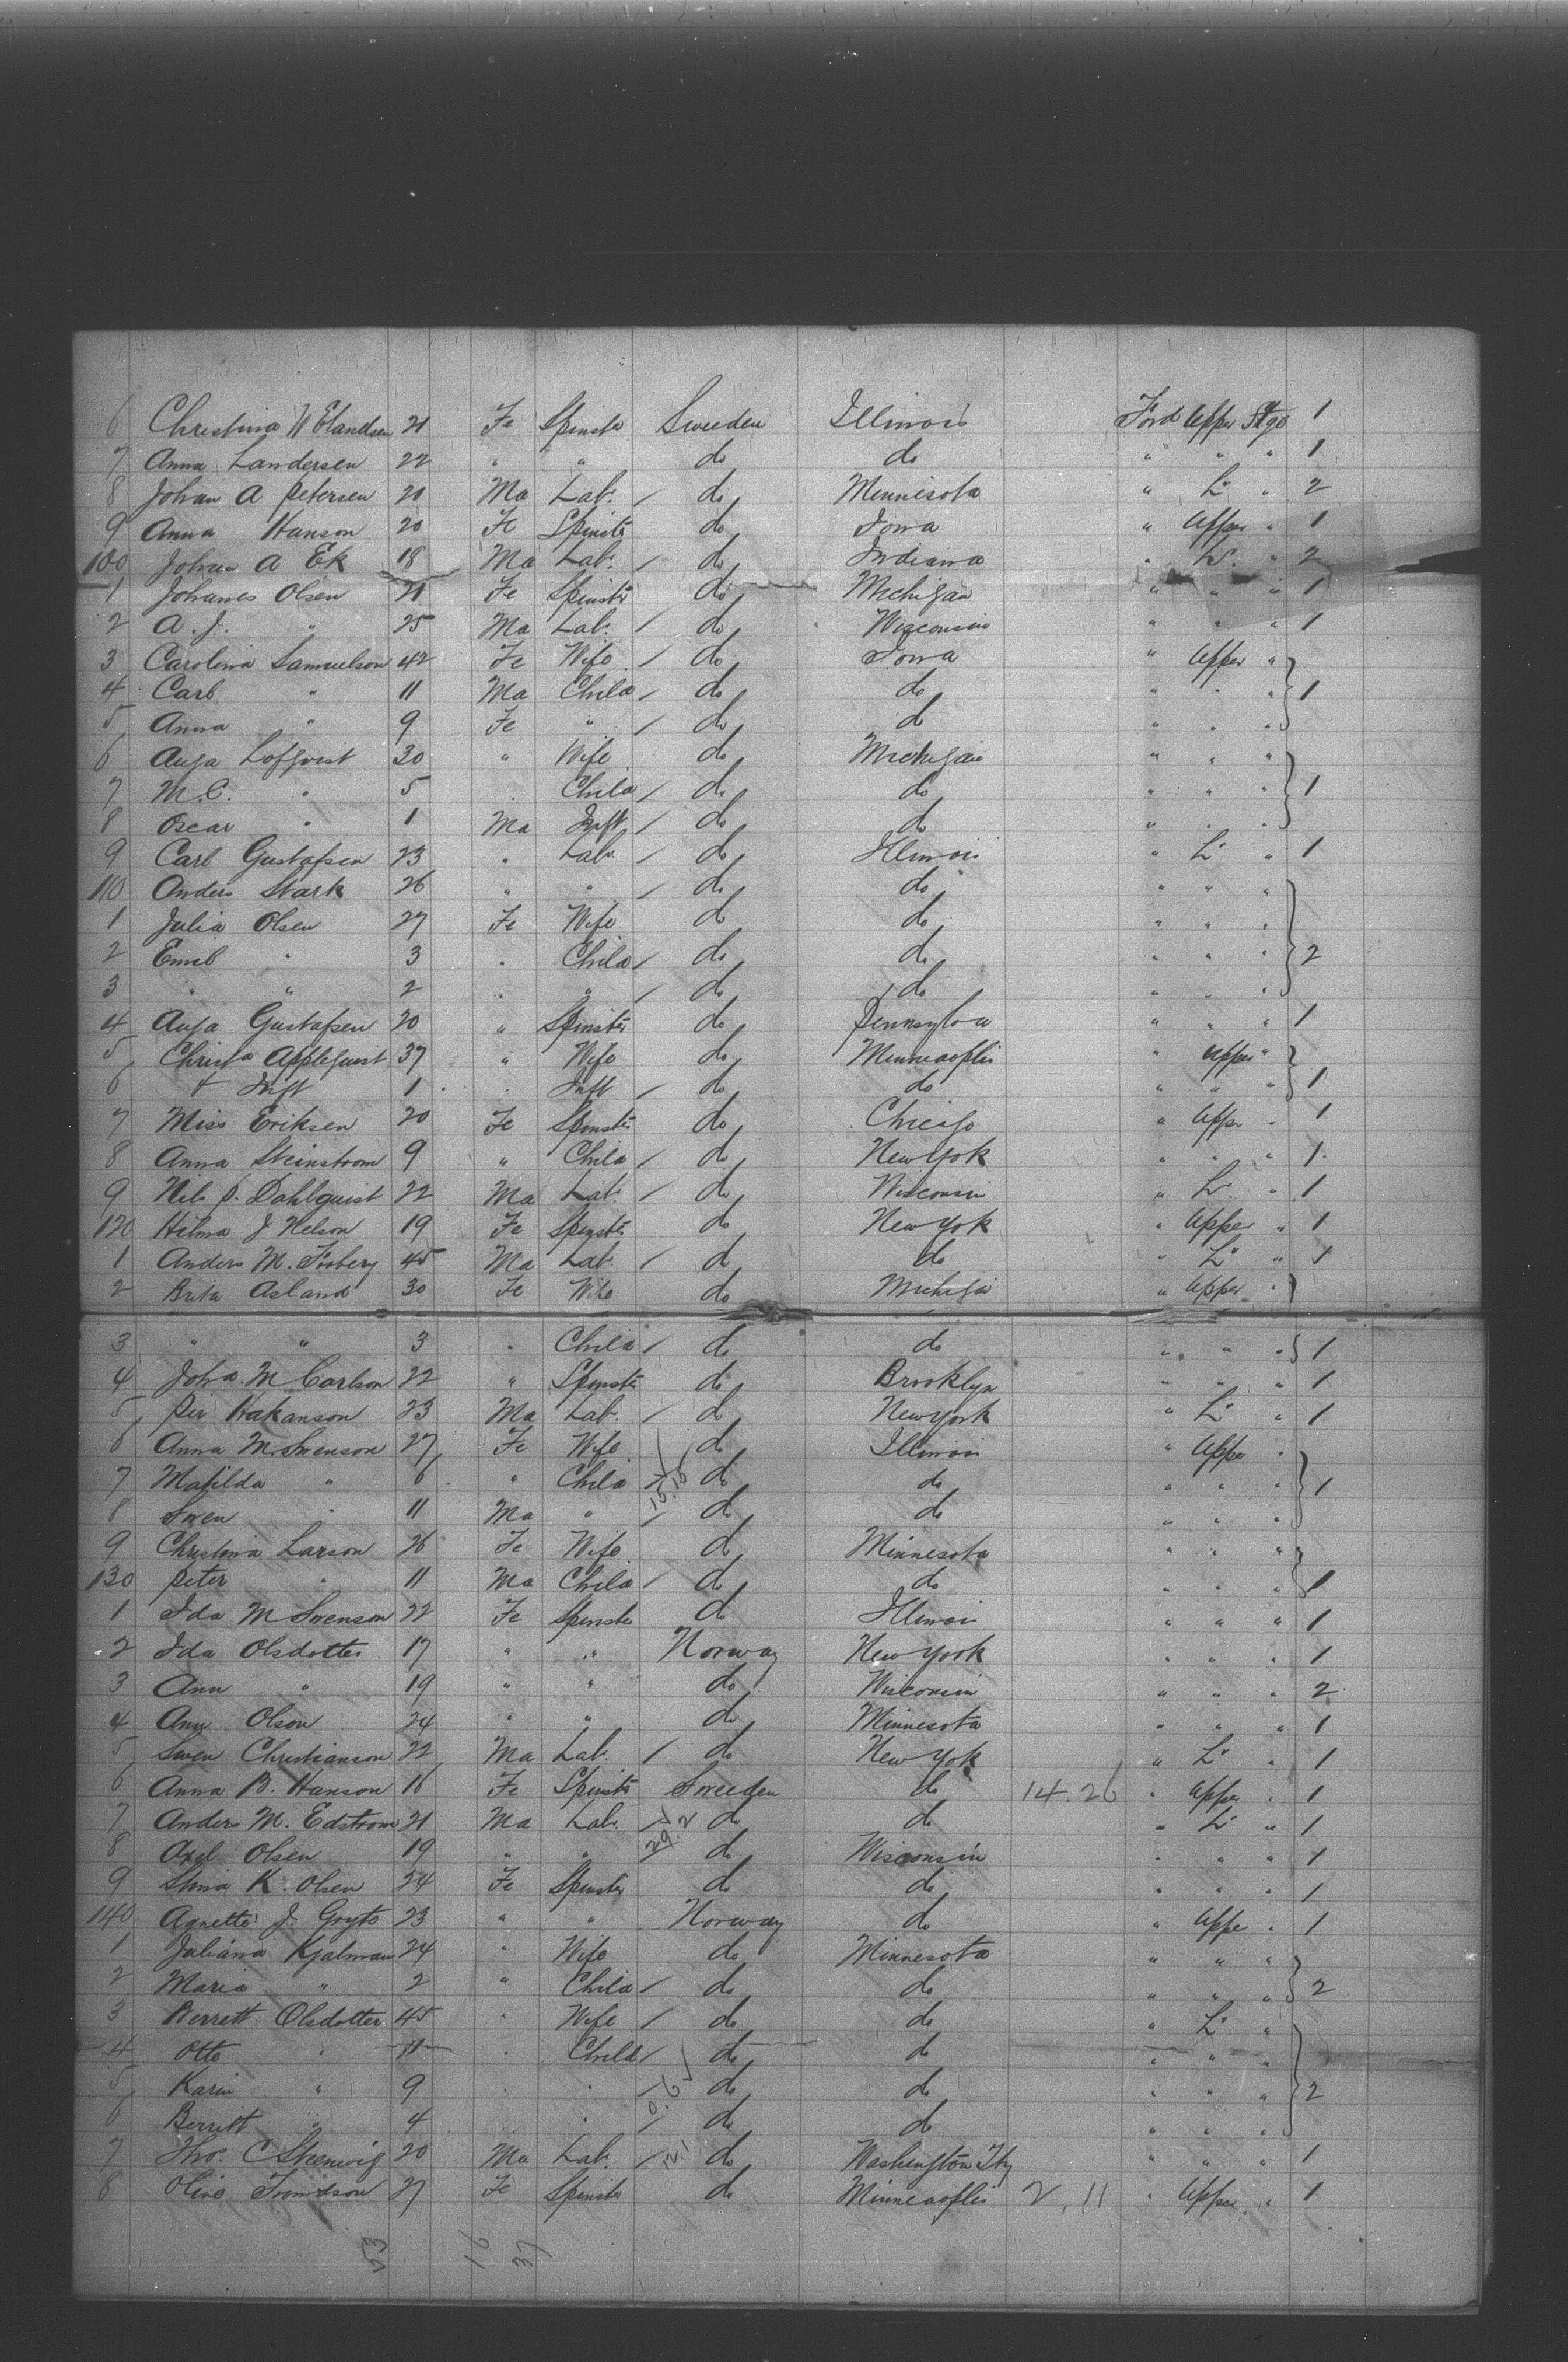 6 Christina W Elandsen 21 Fe Spinstr Sweeden Illinois Ford Upper Stge 1
7 Anna Landersen 22 " " do do " " " 1
8 Johan A Petersen 20 Ma Lab. / do Minnesota " Lr " 2
9 Anna Hanson 20 Fe Spinstr do Iowa " Upper " 1
100 Johan A Ek 18 Ma Lab. / do Indiana " Lr. " 2
1 Johanes Olsen 21 Fe Spinstr do Michigan " " " 1
2 A. J. " 25 Ma Lab. / do Wisconsin " " " 1
3 Carolina Samuelson 42 Fe Wife / do Iowa " Upper "
4 Carl " 11 Ma Child / do do " " " 1
5 Anna " 9 Fe " / do do " " "
6 Auga Lofqvist 30 " Wife do Michigan " " "
7 M.C. " 5 " Child / do do " " " 1
8 Oscar " 1 Ma Inft / do do " " "
9 Carl Gustafsen 23 " Lab. / do Illinois " Lr " 1
110 Anders Stark 26 " " / do do " " "
1 Julia Olsen 27 Fe Wife do do " " "
2 Emil " 3 " Child / do do " " " 2
3 " " 2 " " / do do " " "
4 Auga Gustafsen 20 " Spinstr do Pennsylva " " " 1
5 Christa Applequist 37 " Wife do Minneaoplis " Upper "
6 + Inft 1 " Inft / do do " " " 1
7 Miss Eriksen 20 Fe Spinstr do Chicago " Upper " 1
8 Anna Steinstrom 9 " Child / do New Yok " " " 1
9 Nels P. Dahlquist 22 Ma Lab. / do Wisconsin " Lr. " 1
120 Hilma J Nelson 19 Fe Spinstr do New York " Upper " 1
1 Anders M. Fosberg 45 Ma Lab / do do " Lr " 1
2 Brita Asland 30 Fe Wife do Michigan " Upper "
3 " " 3 " Child / do do " " " 1
4 Joha. M Carlson 22 " Spinstr do Brooklyn " " " 1
5 Per Hakanson 23 Ma Lab. / do New York " Lr " 1
6 Anna M Swenson 27 Fe Wife / do Illinois " Upper "
7 Matilda " 6 " Child / 15.15 do do " " " 1
8 Swen " 11 Ma " / do do " " "
9 Christina Larson 26 Fe Wife do Minnesota " " "
130 Peter " 11 Ma Child / do do " " " 1
1 Ida M Swenson 22 Fe Spinstr do Illinois " " " 1
2 Ida Olsdotter 17 " " Norway New York " " " 1
3 Ann " 19 " " do Wisconsin " " " 2
4 Ann Olson 24 " " do Minnesota " " " 1
5 Swen Christianson 22 Ma Lab. / do New York " Lr " 1
6 Anna B. Hanson 16 Fe Spinstr Sweeden do 14.26 " Upper " 1
7 Anders M. Edstrom 21 Ma Lab. / 29.2 do do " Lr " 1
8 Axel Olsen 19 " " / do Wisconsin " " " 1
9 Stina K. Olsen 24 Fe Spinster do do " " " 1
140 Agnette J. Gryto 23 " " Norway do " Uppe " 1
1 Juliana Kjalman 24 " Wife do Minnesota " " "
2 Maria " 2 " Child / do do " " " 2
3 Berrett Olsdotter 45 " Wife / do do " Lr "
4 Otto " 11 " Child / do do " " "
5 Karin " 9 " " / 0.6 do do " " " 2
6 Berritt " 4 " " / do do " " "
7 Thos. C Stenwig 20 Ma Lab. / 12.1 do Washington Ty " " " 1
8 Oline Tromdson 27 Fe Spinstr do Minneaoplis 2.11 " Upper " 1
53 16 37